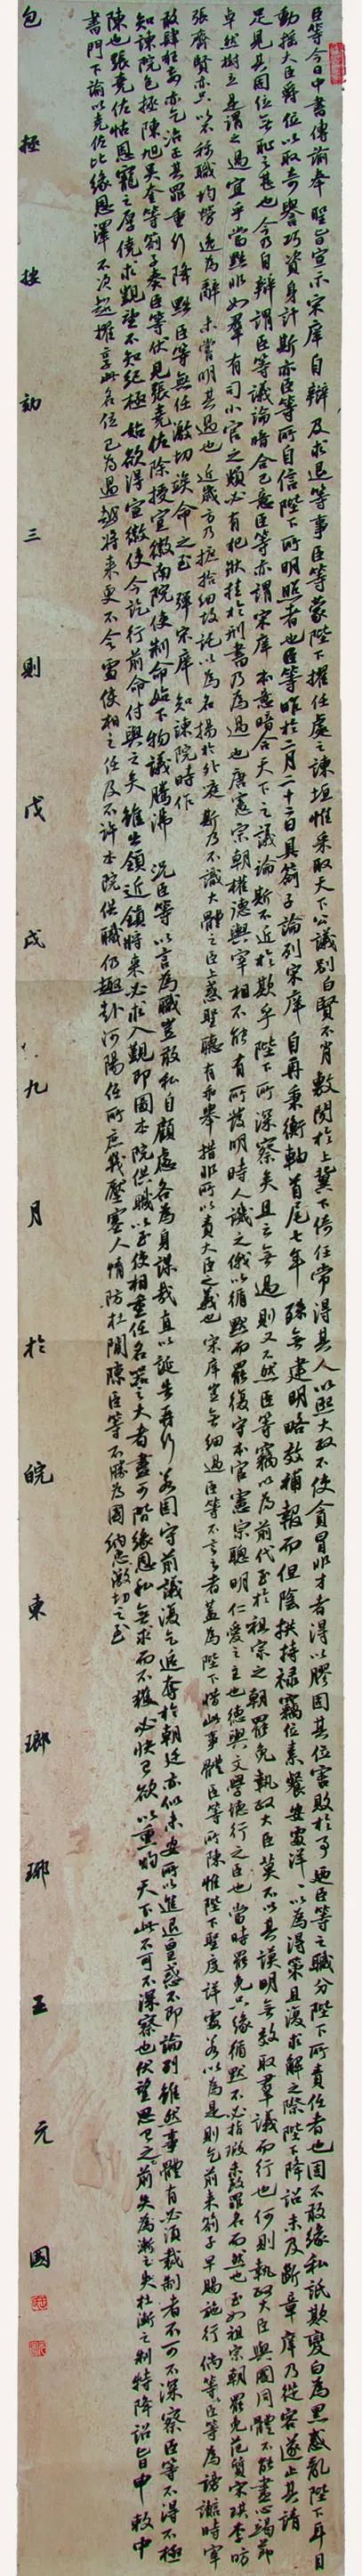 臣等今日中書傳諭奉聖旨宣示宋庠自辯及求退等事臣等蒙陛下擢任處之諫垣惟采取天下公議別白賢不肖敷聞於上冀下倚任常得其人以熙大政不使貪冒非才者得以膠固其位害敗於事廼臣等之職分陛下所責任者也固不敢緣私詆欺變白為黑惑亂陛下耳目
動搖大臣爵位以取奇譽巧資身計斯亦臣等所自信陛下所明照者也臣等昨於二月二十二日具劄子論列宋庠自再秉衡軸首尾七年殊無建明略效補報而但陰拱持祿竊位素餐安處洋洋以為得策且復求解之際陛下降詔未及斷章庠乃從容遂止其請
足見其固位無恥之甚也今乃自辯謂臣等議論暗合己意臣等亦謂宋庠本意暗合天下之議論斯不近於欺乎陛下所深察矣且云無過則又不然臣等竊以為前代至於祖宗之朝罷免執政大臣莫不以其謨明無效取羣議而行也何則執政大臣與國同體不能盡心竭節
卓然樹立是謂之過宜乎當黜非如羣有司小官之類必有犯狀挂於刑書乃為過也唐憲宗朝權德輿宰相不能有所發明時人譏之俄以循默而罷復守本官憲宗聰明仁愛之主也德輿文學德行之臣也當時罷免只緣循默不必指瑕末致罪名而然也至如祖宗朝罷免范質宋琪李昉
張齊賢亦只以不稱職均勞逸為辭未嘗明其過也近歲方乃摭拾細故託以為名揚於外庭斯乃不識大體之臣上惑聖聽有乖舉措非所以責大臣之義也宋庠豈無細過臣等不言之者蓋為陛下惜此事體臣等所陳惟陛下聖度詳處若以為是則乞前來劄子早賜施行倘等臣等為謗讟時宰
敢肆狂高亦乞治正其罪重行降黜臣等無任激切竢命之至 彈宋庠 知諫院時作
知諫院包拯陳旭吳奎等劄子奏臣等伏見張堯佐除授宣徽南院使制命始下物議騰沸 況臣等以言為職豈敢私自顧慮各為身謀哉直以誕告再行若固守前議復乞追奪於朝廷亦似未安所以進退皇惑不即論列雖然事體有必須裁制者不可不深察臣等不得不極
陳也張堯佐怙恩寵之厚僥求覬望不知紀極始欲得宣徽使今訖行前命付與之矣雖出領近鎮將來必求入覲即圖本院供職以至使相重任名器之大者盡可階緣恩私無求而不獲必快己欲以重天下此不可不深察也伏望思已之前失為漸之失杜漸之制特降詔旨申敕中
書門下諭以堯佐比緣恩澤不次超擢享此名位已為過越將來更不令處使相之任及不許本院供職仍趣赴河陽任所庶幾壓塞人情防杜閒隙臣等不勝為國納忠激切之至
包拯按劾三則戊戌九月於皖東瑯琊王元國